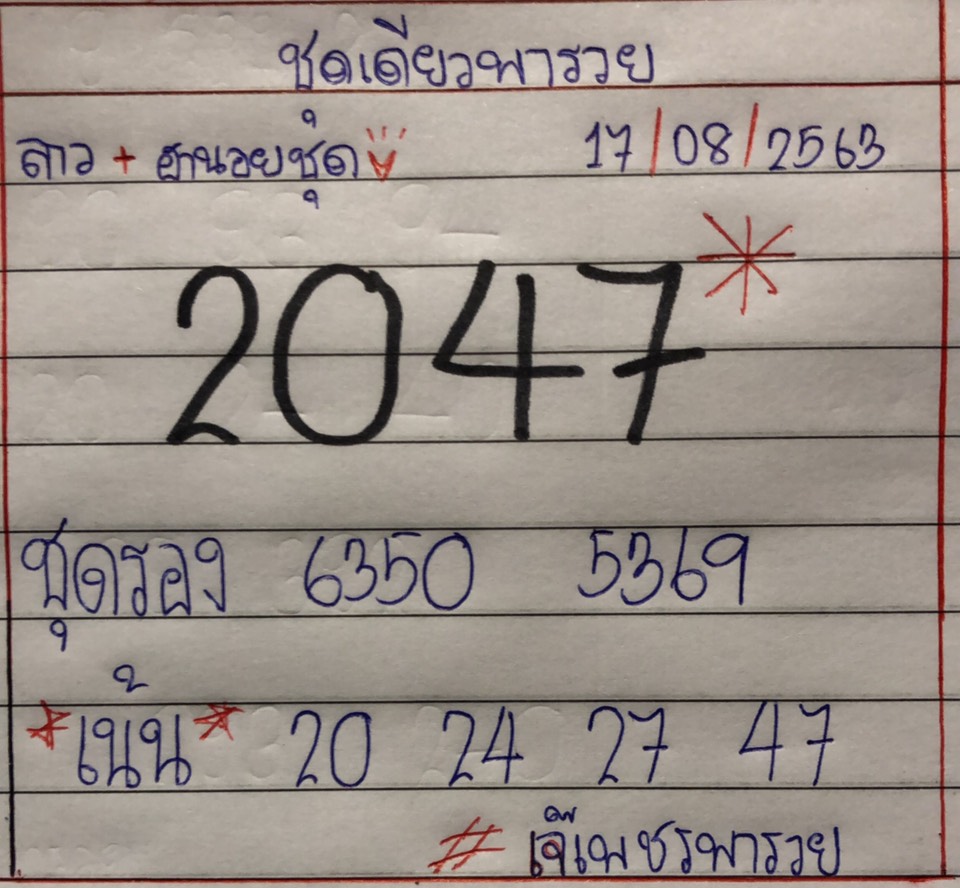 ชุดเดียวพารวย
ลาว + ฮานอยชุด 17/08/2563
2047
ชุดรอง 6350 5369
*เน้น* 20 24 27 47
# เจ๊เพชรพารวย